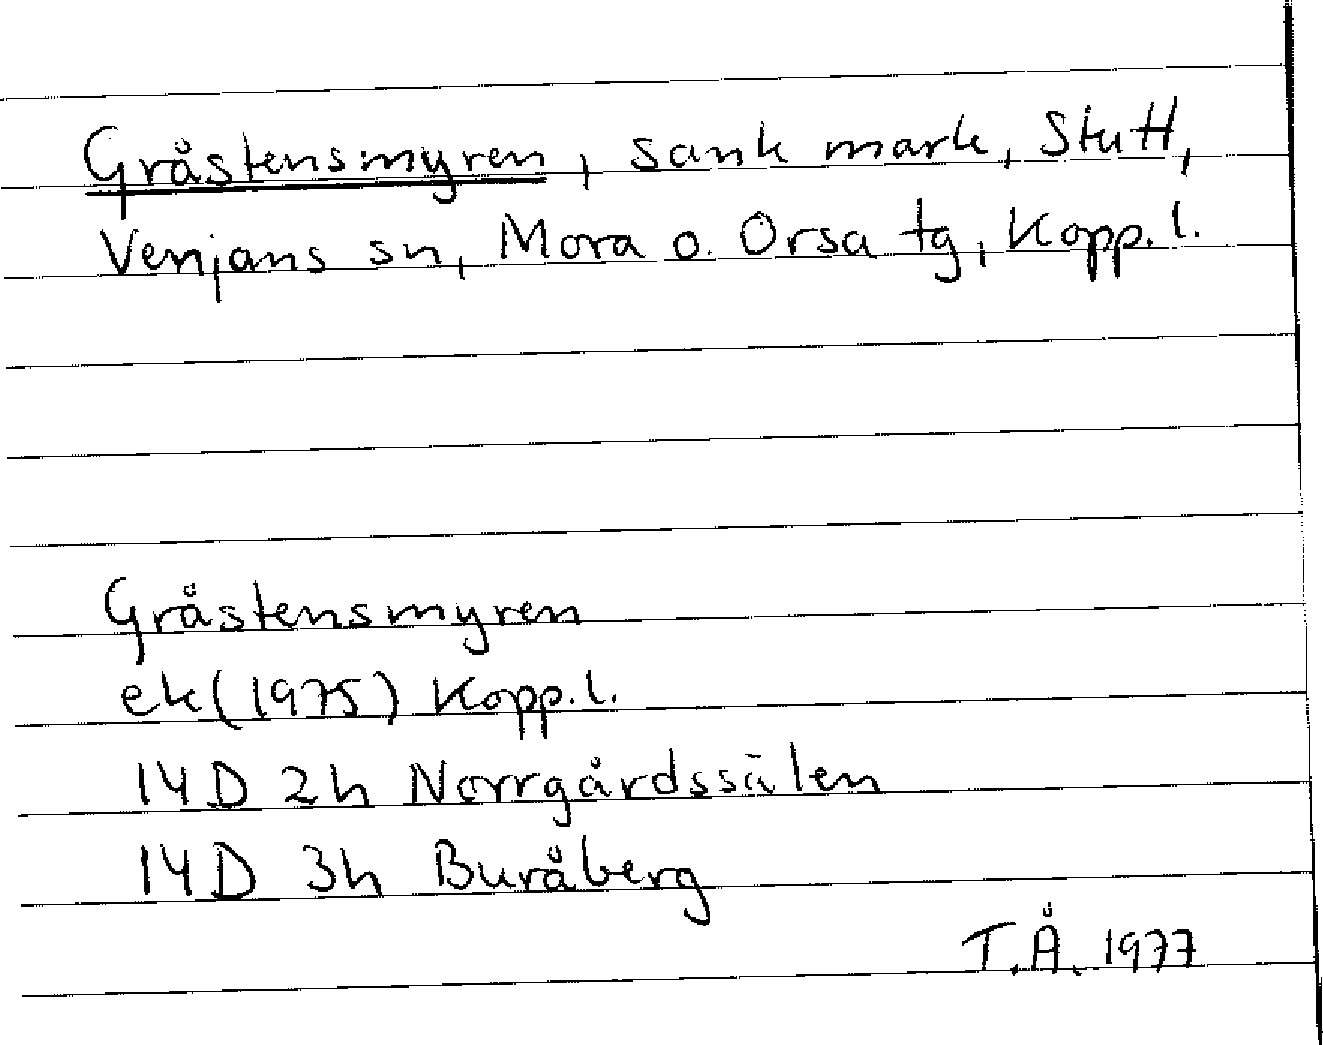 Gråstensmyren, sank mark, Stutt,
Venjans sn, Mora o. Orsa tg, Kopp. l.
Gråstensmyren
ek (1975) Kopp. l.
14D 2h Norrgårdssälen
14D 3h Buråberg
T.Å. 1977